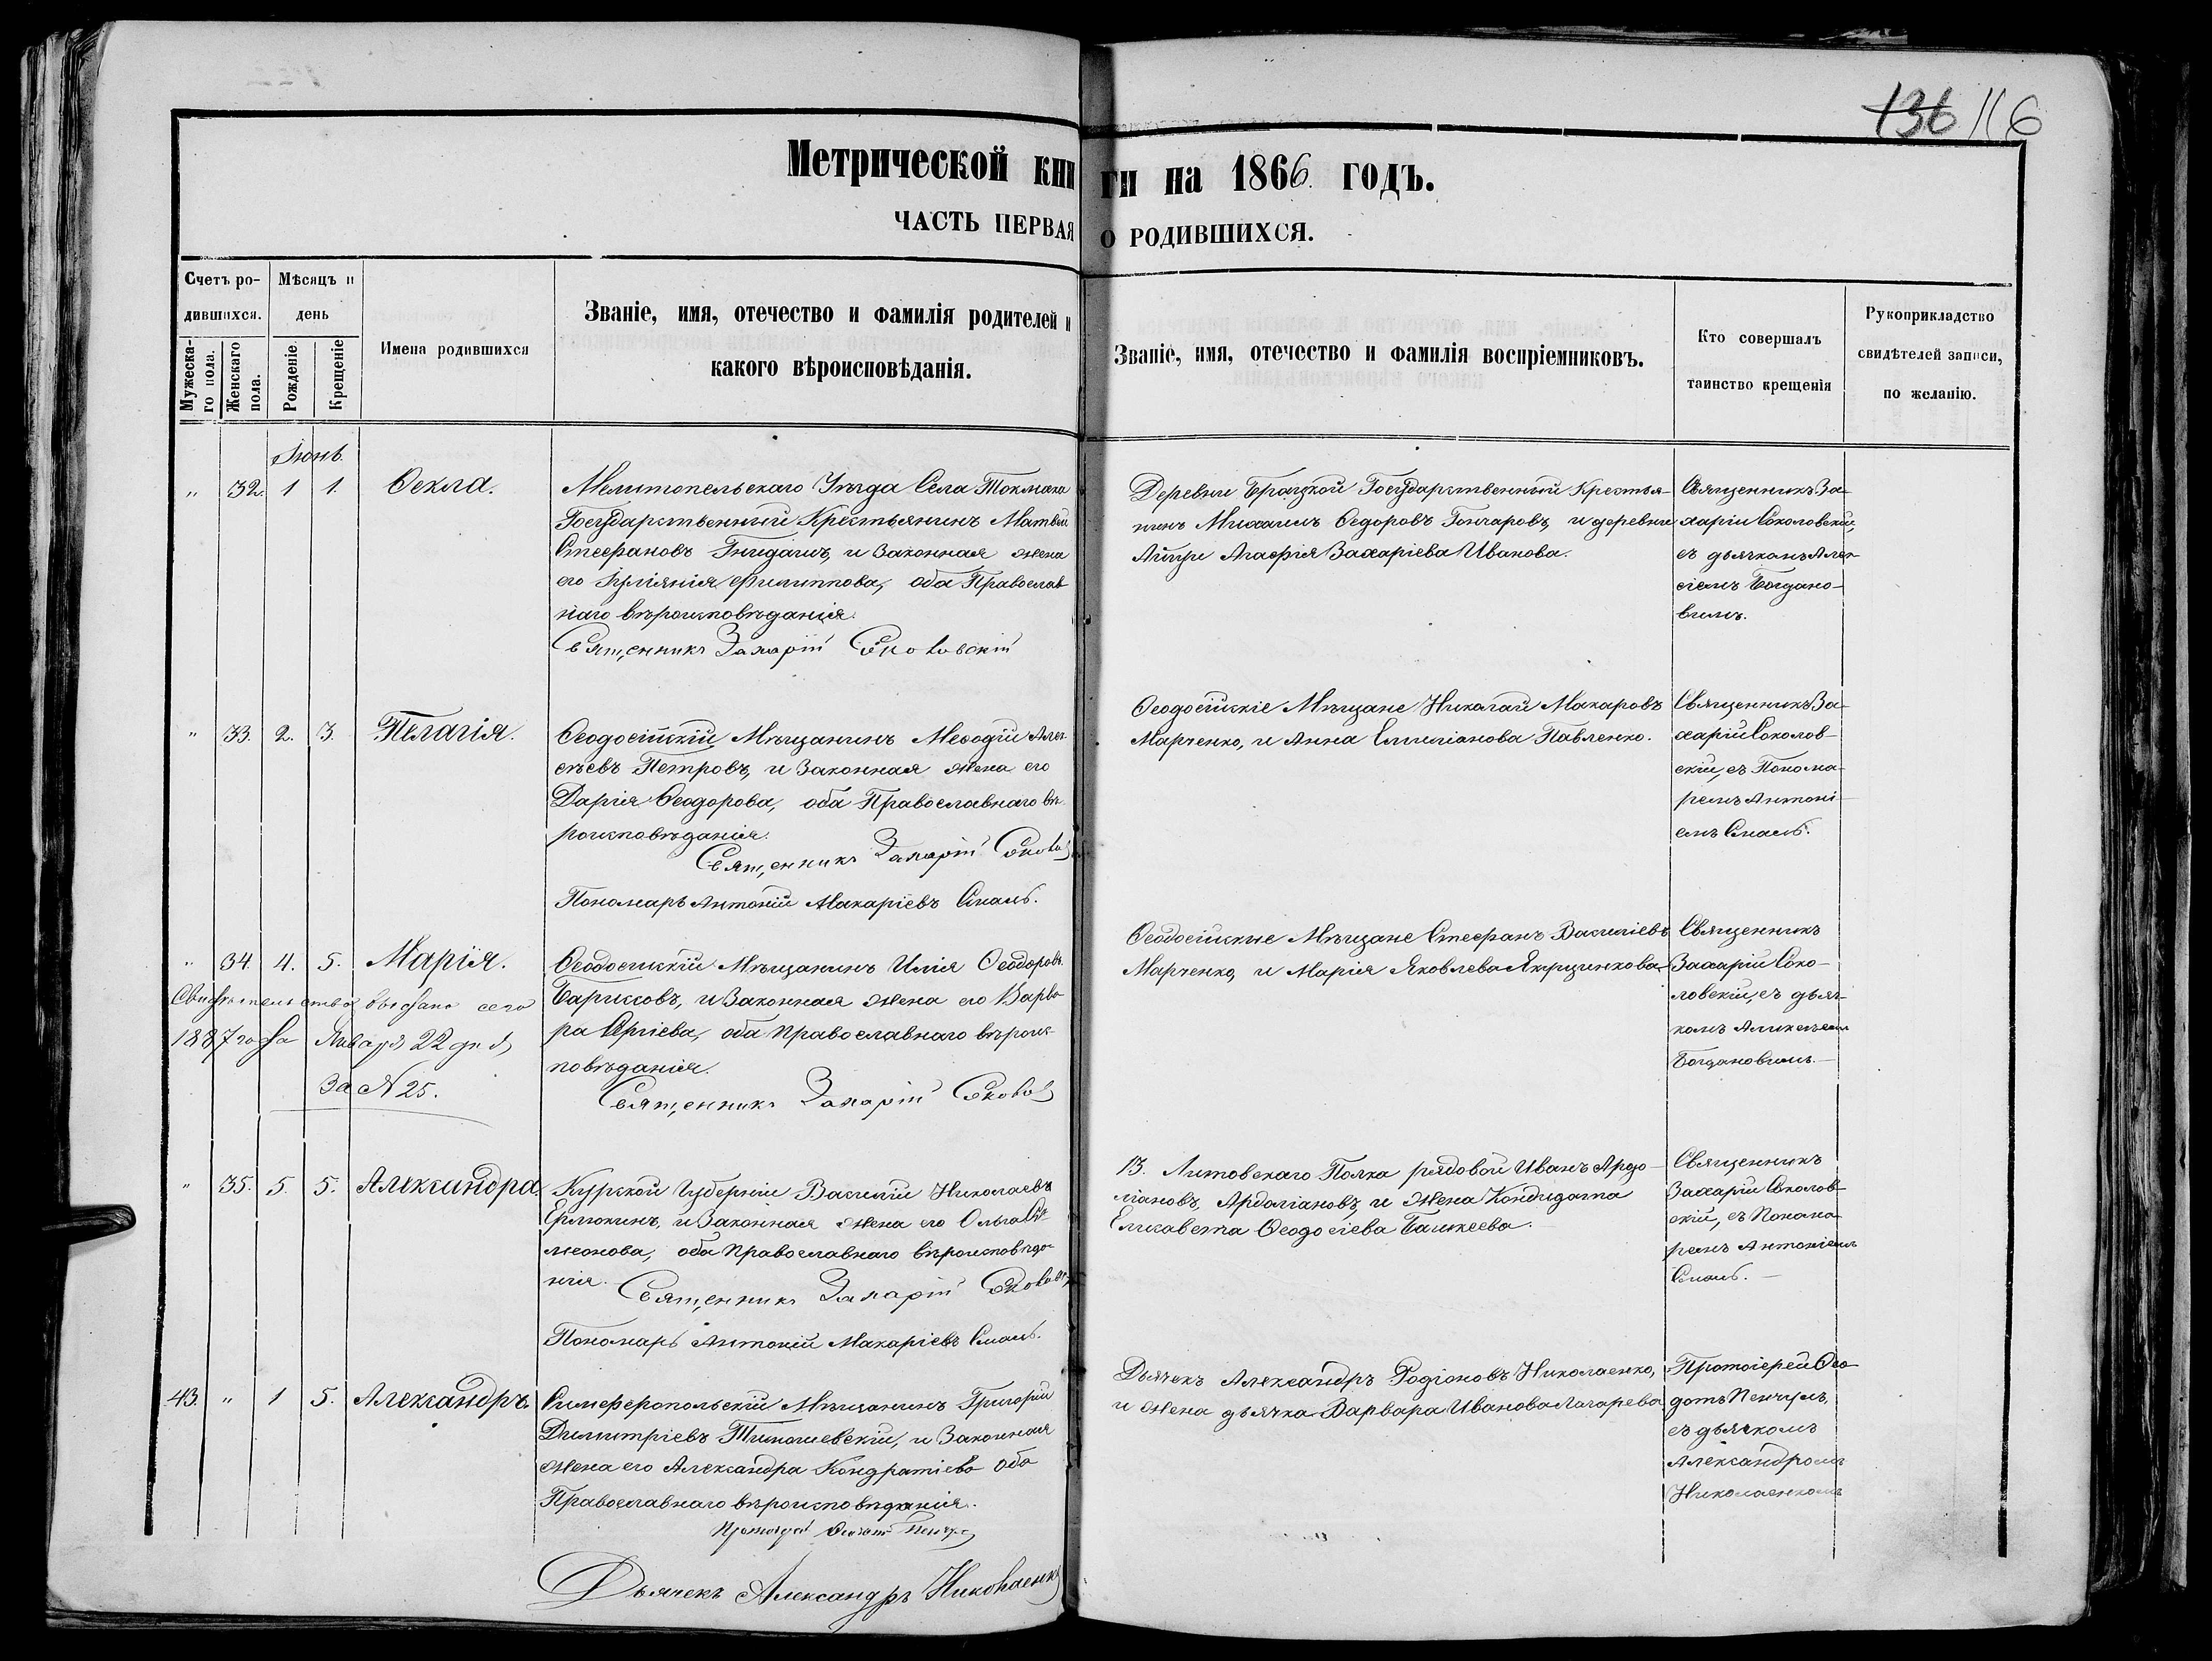 136 116
Метрической книги на 1866. годъ.
ЧАСТЬ ПЕРВАЯ О РОДИВШИХСЯ.
Счетъ ро-
дившихся.
Мужеска-
го пола.
Женскаго
пола.
Мѣсяцъ и
день
Рожденіе.
Крещеніе
Имена родившихся
Званіе, имя, отечество и фамилія родителей и
какого вѣроисповѣданія.
Званіе, имя, отечество и фамилія воспріемниковъ.
Кто совершалъ
таинство крещенія
Рукоприкладство
свидѣтелей записи,
по желанію.
Іюнь.
" 32. 1 1. Ѳекла.
Мелитопельскаго Уѣзда Села Токмака
Государственный Крестьянинъ Матвей
Стефановъ и Законная жена
его Іуліанія Филиппова, оба Православ
наго вѣроисповѣданія.
Священникъ Захарій Соколовскій
Деревни Государственный Крестья-
нинъ Михаилъ Ѳедоровъ Гончаровъ, и деревни
Агафія Захаріева Иванова.
Священникъ За-
харій Соколовскій,
съ дьячкомъ Алек-
сіемъ Богдано-
вимъ.
" 33. 2. 3. Пелагія.
Ѳеодосійскій Мѣщанинъ Меѳодій Алек-
сѣевъ Петровъ, и Законная жена его
Дарія Ѳеодорова, оба Православнаго вѣ-
роисповѣданія.
Священникъ Захарій Соколов
Пономарь Антоній Макаріевъ
Ѳеодосійскіе Мѣщане Николай Макаровъ
Марченко, и Анна Емиліанова Павленко.
Священникъ За-
харій Соколов-
скій, съ Понома-
ремъ Антоні-
емъ
" 34. 4. 5. Марія.
Свидѣтельство выдано сего
1887 года Января 22 дня
за N 25.
Ѳеодосійскій Мѣщанинъ Илія Ѳеодоровъ
Борисовъ, и Законная жена его Варва
ра Сергіева, оба Православнаго вѣроис-
повѣданія.
Священникъ Захарій Соколов
Ѳеодосійскіе Мѣщане Стефанъ Василіевъ
Марченко, и Марія Яковлева
Священникъ
Захарій Соко-
ловскій, съ дьяч-
комъ Алексѣемъ
Богдановимъ.
" 35. 5. 5. Александра.
Курской Губерніи Василій Николаевъ
Ермокинъ, и Законная жена его Ольга Си-
меонова, оба Православнаго вѣроисповѣда-
нія.
Священникъ Захарій Соколовск
Пономарь Антоній Макаріевъ
13. Литовскаго Полка рядовой Иванъ Ардо-
ліановъ, Ардаліановъ, и жена Кондидата
Елисавета Ѳеодосіева
Священникъ
Захарій Соколов-
скій, съ Понома-
ремъ Антоніемъ
43. " 1 5. Александръ.
Симферопольскій Мѣщанинъ Григорій
Димитріевъ Тимошевскій, и Законная
жена его Александра Кондратіева оба
Православнаго вѣроисповѣданія.
Протоіерей
Дьячекъ Александръ Николаенк
Дьячекъ Александръ Родіоновъ Николаенко,
и жена дьячка Варвара Иванова
Протоіерей Ѳео
дотъ
съ дьячкомъ
Александромъ
Николаенкомъ